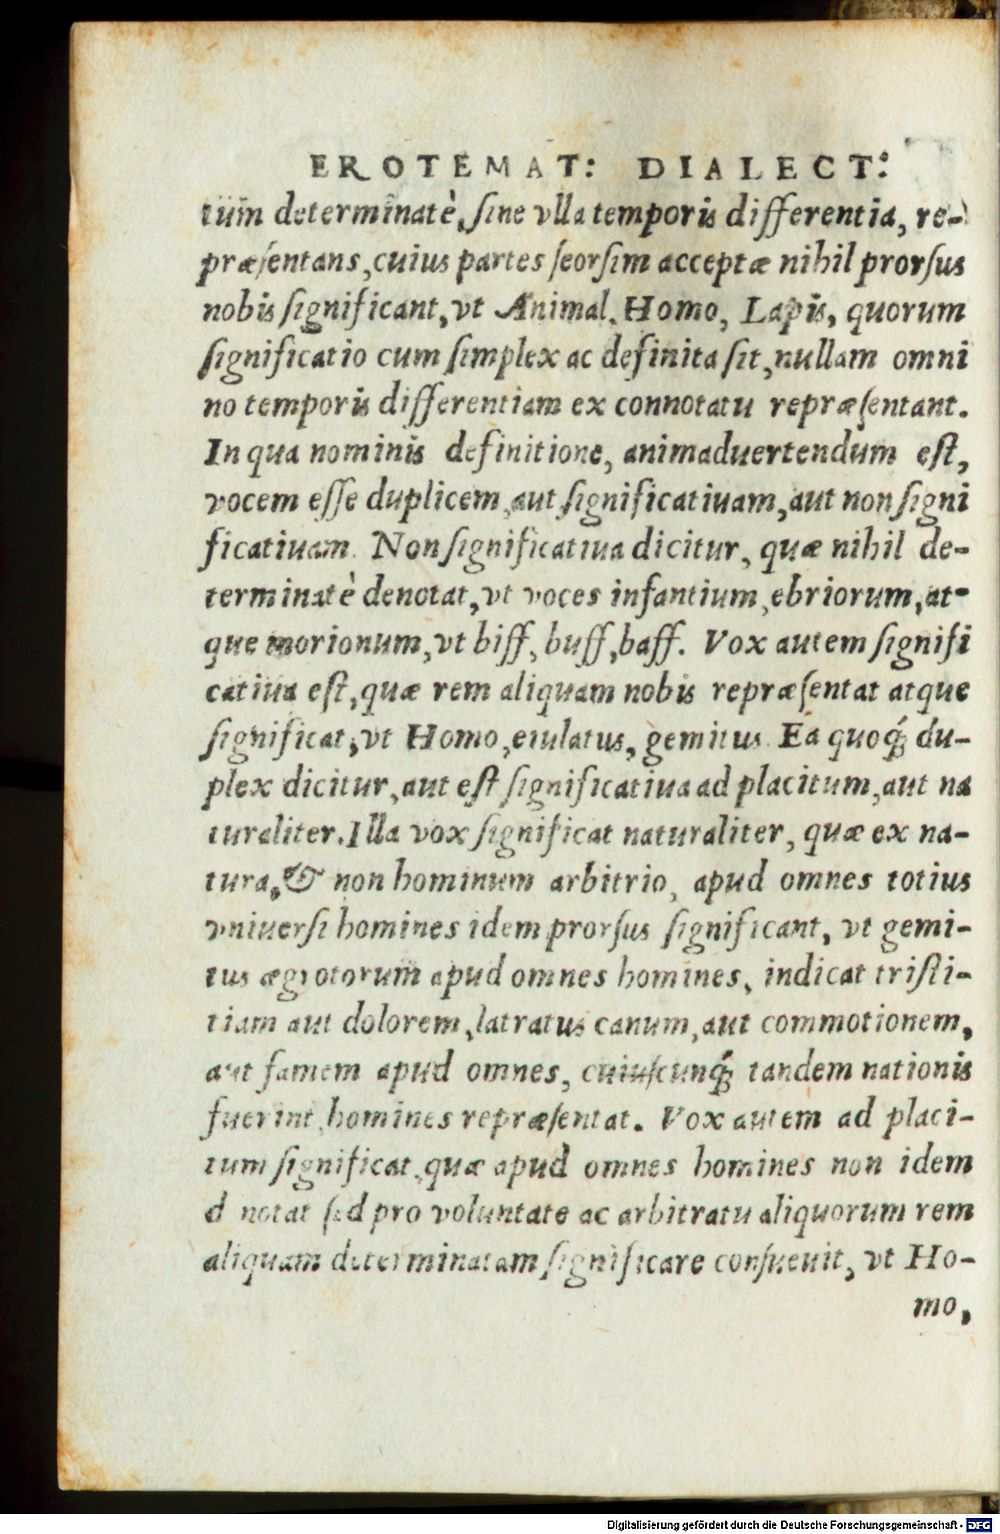 EROTEMAT: DIALECT:
tum determinatè, ſine vlla temporis differentia, re-
præſentans, cuius partes ſeorſim acceptæ nihil prorſus
nobis ſignificant, vt Animal, Homo, Lapis, quorum
ſignificatio cum ſimplex ac definita ſit, nullam omni
no temporis differentiam ex connotatu repræſentant.
In qua nominis definitione, animaduertendum eſt,
vocem eſſe duplicem, aut ſignificatiuam, aut non ſigni
ficatiuam. Non ſignificatiua dicitur, quæ nihil de-
terminatè denotat, vt voces infantium, ebriorum, at-
que morionum, vt biff, buff, baff. Vox autem ſignifi
catiua eſt, quæ rem aliquam nobis repræſentat atque
ſignificat, vt Homo, eiulatus, gemitus. Ea quoq́; du-
plex dicitur, aut eſt ſignificatiua ad placitum, aut na
turaliter. Illa vox ſignificat naturaliter, quæ ex na-
tura, & non hominum arbitrio, apud omnes totius
vniuerſi homines idem prorſus ſignificant, vt gemi-
tus ægrotorum apud omnes homines, indicat triſti-
tiam aut dolorem, latratus canum, aut commotionem,
aut famem apud omnes, cuiuſcunq́; tandem nationis
fuerint, homines repræſentat. Vox autem ad placi-
tum ſignificat, quæ apud omnes homines non idem
d notat ſed pro voluntate ac arbitratu aliquorum rem
aliquam determinatam ſignificare conſueuit, vt Ho-
mo,
Digitalisierung gefördert durch die Deutsche Forschungsgemeinschaft - DFG